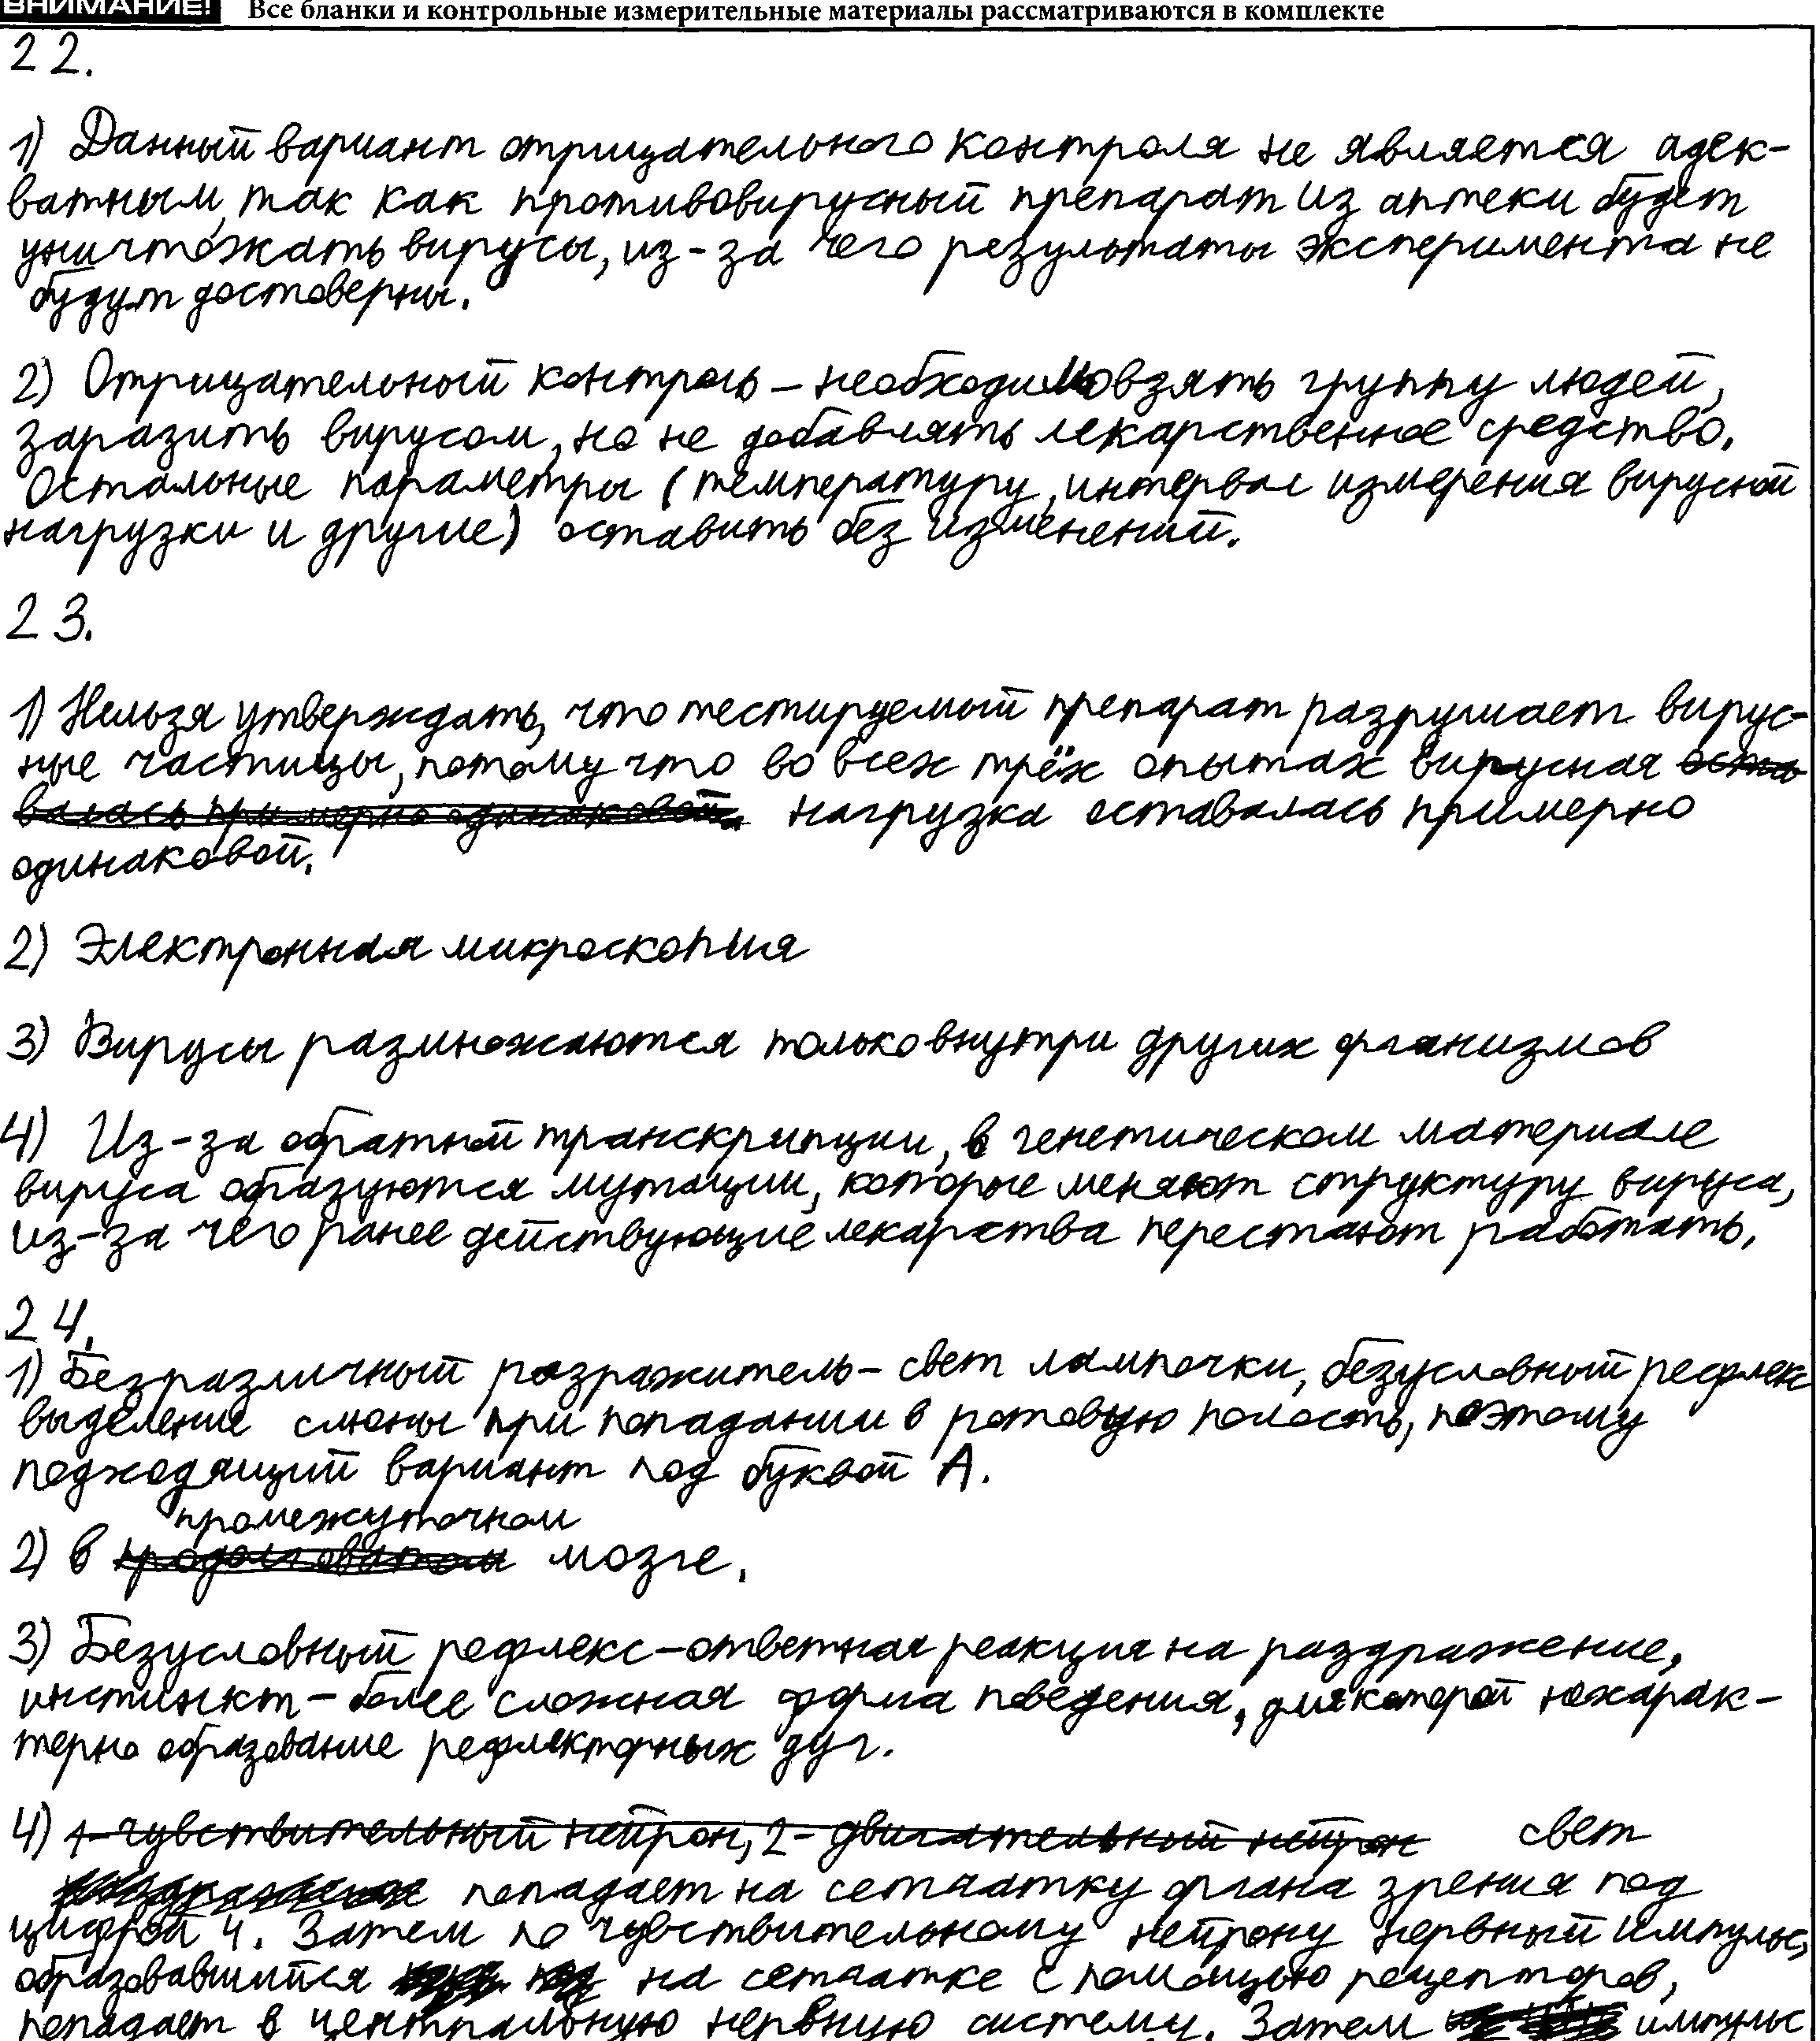 ВНИМАНИЕ! Все бланки и контрольные измерительные материалы рассматриваются в комплекте
22.
1) Данный вариант отрицательного контроля не является адек-
ватным, так как противовирусный препарат из аптеки будет
уничтожать вирусы, из-за чего результаты эксперимента не
будут достоверны.
2) Отрицательный контроль – необходимо взять группу людей,
заразить вирусом, но не добавлять лекарственное средство.
Остальные параметры (температуру, интервал измерения вирусной
нагрузки и другие) оставить без изменений.
23.
1) Нельзя утверждать, что тестируемый препарат разрушает вирус-
ные частицы, потому что во всех трёх опытах вирусная оста
валась примерно одинаковой. нагрузка оставалась примерно
одинаковой.
2) Электронная микроскопия
3) Вирусы размножаются только внутри других организмов
4) Из-за обратной транскрипции, в генетическом материале
вируса образуются мутации, которые меняют структуру вируса,
из-за чего ранее действующие лекарства перестают работать.
24.
1) Безразличный розражитель – свет лампочки, безусловный рефлекс
выделение слюны при попадании в ротовую полость, поэтому
подходящий вариант под буквой А.
промежуточном
2) в продолговатом мозге.
3) Безусловный рефлекс – ответная реакция на раздражение,
инстинкт – более сложная форма поведения, для которой нехарак-
терно образование рефлекторных дуг.
4) 1-чувствительный нейрон, 2- двигательный нейрон свет
попадает на сетчатку органа зрения под
цифрой 4. Затем по чувствительному нейрону нервный импульс,
образовавшийся на сетчатке с помощью рецепторов,
попадает в центральную нервную систему. Затем импульс